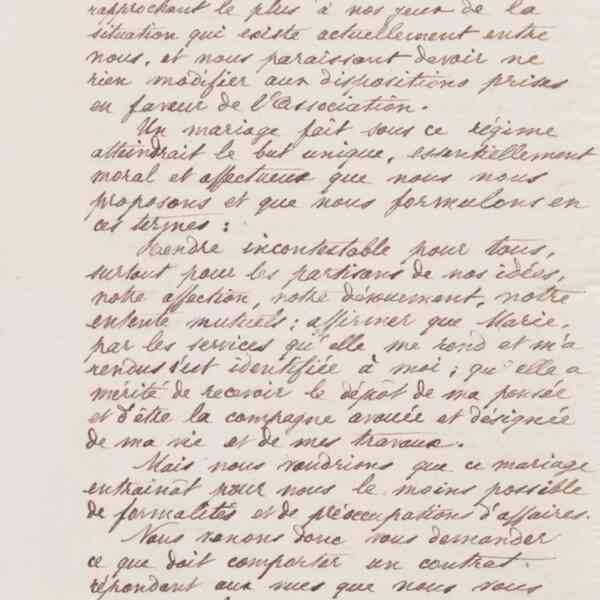 rapprochant le plus à nos yeux de la
situation qui existe actuellement entre
nous, et nous paraissant devoir ne
rien modifier aux dispositions prises
en faveur de l'association.
Un mariage fait sous ce régime
atteindrait le but unique, essentiellement
moral et affectueux que nous nous
proposons et que nous formulons en
ces termes :
Rendre incontestable pour tous,
surtout pour les partisans de nos idées,
notre affection, notre dévouement, notre
entente mutuels ; affirmer que Marie,
par les services qu'elle me rend et m'a
rendus s'est identifiée à moi ; qu'elle a
mérité de recevoir le dépôt de ma pensée
et d'être la compagne avouée et désignée
de ma vie et de mes travaux.
Mais nous voudrions que ce mariage
entrainât pour nous le moins possible
de formalités et de préoccupations d'affaires.
Nous venons donc vous demander
ce que doit comporter un contrat
répondant aux vues que nous vous